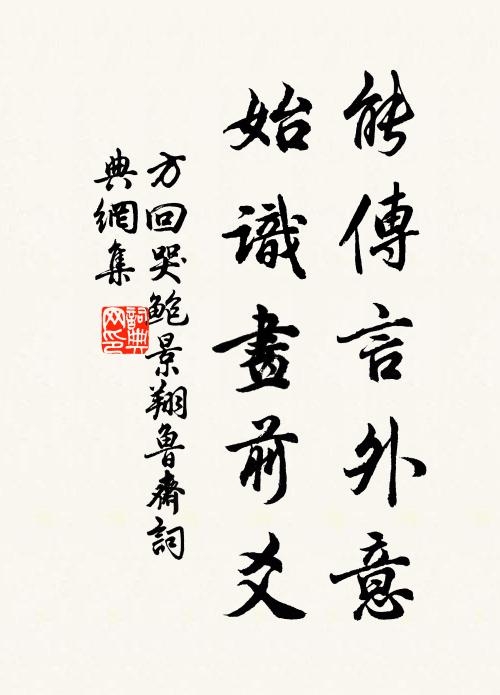 能傳言外意
始識畫前爻
方回哭鮑景翔魯齋詞
典網集
詞典
网印